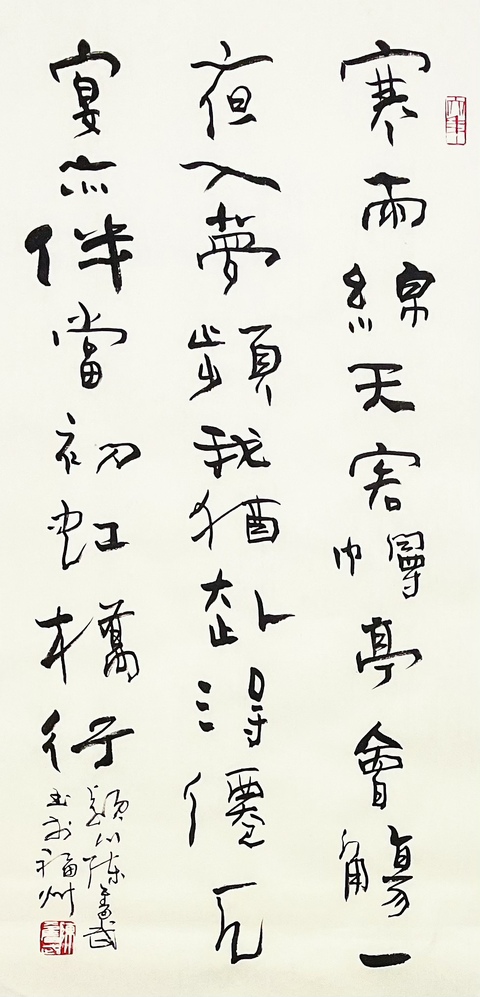 寒雨綿天客幔亭會觴一
夜入夢頻我猶赴得僊凡
宴亦伴當初虹橋行
潁川陳武
書於福州